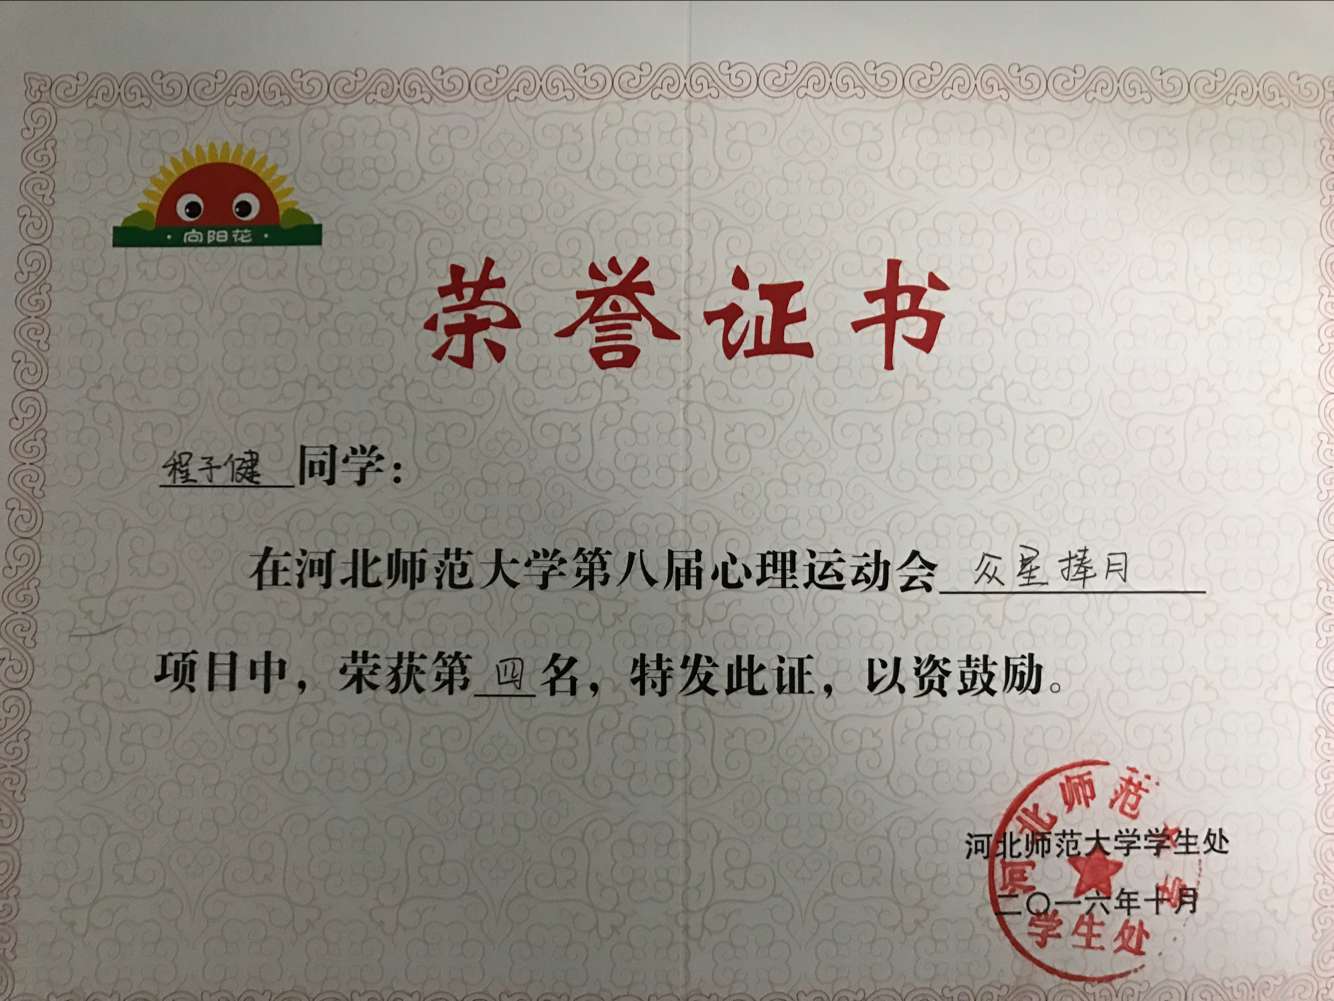 ·向阳花·
荣誉证书
程子健同学：
在河北师范大学第八届心理运动会众星捧月
项目中，荣获第四名，特发此证，以资鼓励。
河北师范大学学生处
二〇一六年十月
河北师范大学
学生处